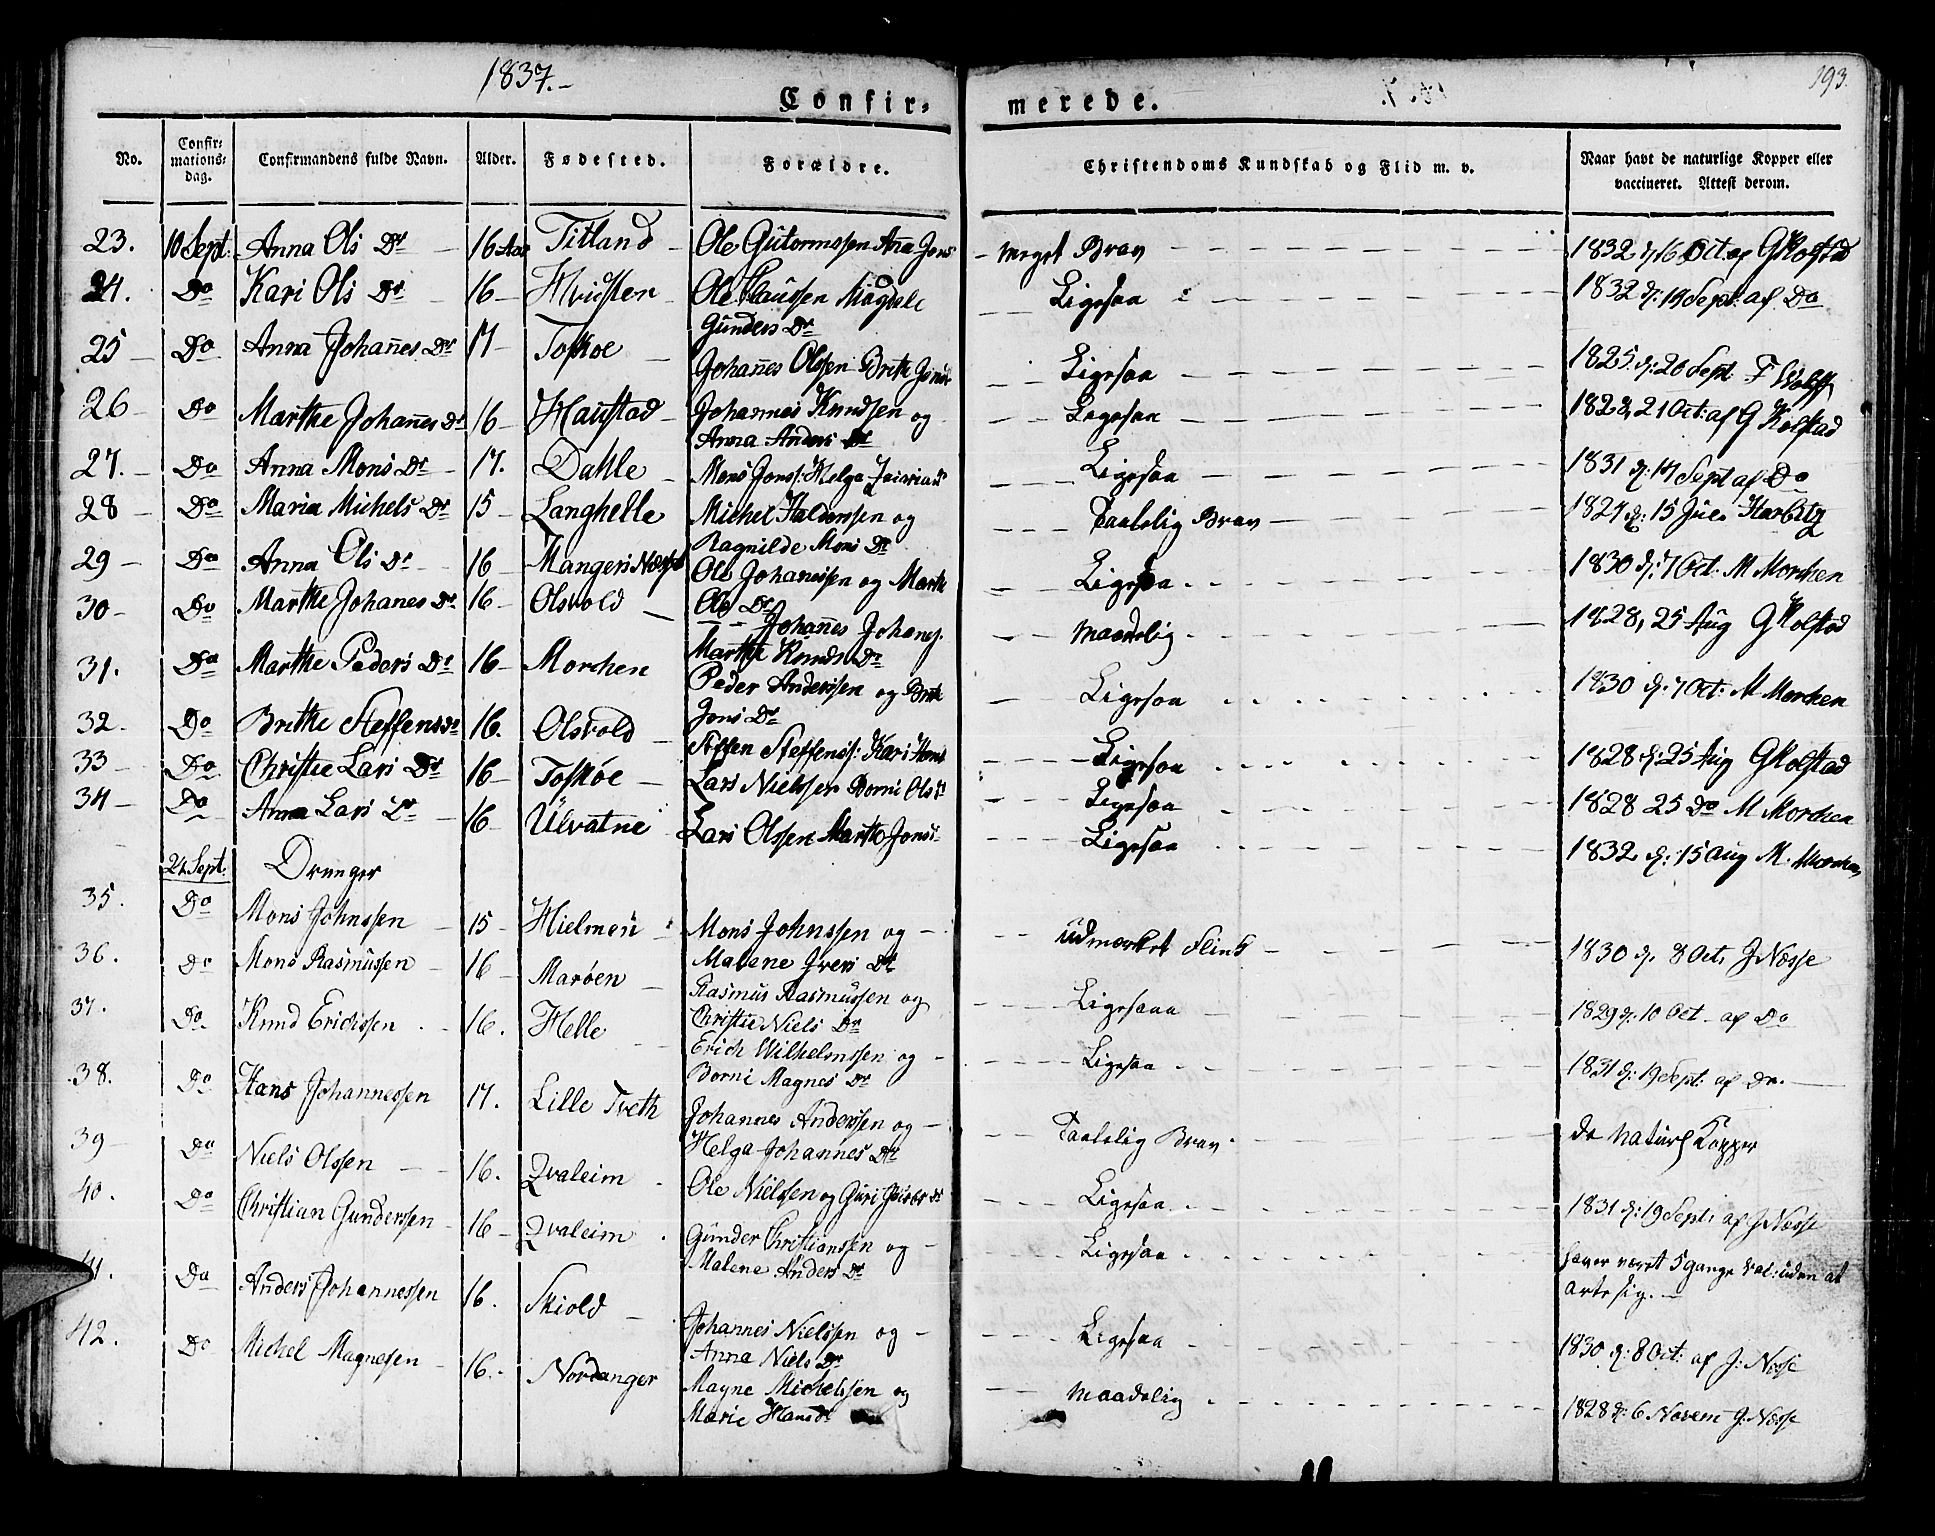 1837.-
193.
Confir-
merede.
No.
Confir-
mations-
dag.
Confirmandens fulde Navn.
Alder.
Fødested.
Forældre.
Christendoms Kundskab og Flid m. v.
Naar havt de naturlige Kopper eller
vaccineret. Attest derom.
23. 10 Sept: Anna Ols Dr 16 Aar Titland Ole Gutormssen Anna Jons meget Brav 1832 d: 16 Oct af G Kolstad
24. Do Kari Ols Dr 16 Ole Claussen Magdele Ligesaa 1832 d: 19 Sept: af Do
Gunders Dr
25 Do Anna Johañes Dr 17 Toskoe Johañes Olssen Brithe Ligesaa 1825 d: 26 Sept F Wolff
26 Do Marthe Johañes Dr 16 Haustad Johannes Knudsen og Ligesaa 1828, 21 Oct: af G Kolstad
Anna Anders Dr
27. Do Anna Mons Dr 17. Dahle Mons Jons: Helga Ligesaa 1831 d: 19 Sept af Do
28 Do Maria Michels Dr 15 Langhelle Michel Haldorssen og Taalelig Brav 1824 d: 15 Jule Harbitz
Ragnilde Mons Dr
29 Do Anna Ols Dr 16 Mangers Ole Johanessen og Marthe Ligesaa 1830 d: 7 Oct: M Morchen
Ols Dr
30 Do Marthe Johanes Dr 16 Olsvold Johañes Johanes. Maadelig 1828, 25 Aug G Kolstad
Marthe Knuds Dr
31. Do Marthe Peders Dr 16 Morchen Peder Anderssen og Brithe Ligesaa 1830 d: 7 Oct: M Morchen
Jons Dr
32. Do Brithe Steffens Dr 16. Olsvold Steffen Steffenss: Kari Ligesaa 1828 d: 25 Aug G Kolstad
33 Do Christie Lars Dr 16 Toskøe Lars Nielssen Borni Ols Dr Ligesaa 1828 25 Do M Morchen
34 Do Anna Lars Dr 16 Ulvatne Lars Olssen Marthe Jons Ligesaa 1832 d: 15 Aug M. Morchen
24 Sept: Drenger
35. Do Mons Johnssen 15 Hielmen Mons Johnssen og Udmærket Flink 1830 d. 8 Oct, J Næsse
Malene Ivers Dr
36. Do Mons Rasmussen 16 Marøen Rasmus Rasmussen og Ligesaaa 1829 d: 10 Oct af Do
Christie Niels Dr
37. Do Knud Erichssen 16. Helle Erich Wilhelmssen og Ligesaa 1831 d: 19 Sept: af Do.
Borni Magnes Dr
38. Do Hans Johannessen 17. Lille Tveth Johannes Anderssen og Taalelig Brav de naturl Kopper
Helga Johannes Dr
39 Do Niels Olssen 16. Qvaleim Ole Nielssen og Guri Dr Ligesaa 1831 d: 19 Sept: af J Næsse
40. Do Christian Gunderssen 16 Qvaleim Gunder Christianssen og Ligesaa haver været 5 gange vac: uden at
Malene Anders Dr arte sig.
41. Do Anders Johannessen 16. Skiold Johannes Nielssen og Ligesaa 1830 d: 8 Oct: af J: Næsse
Anna Niels Dr
42. Do Michel Magnesen 16. Nordanger Magne Michelssen og Maadelig 1828 d: 6 Novem J: Næsse
Marie Hans Dr